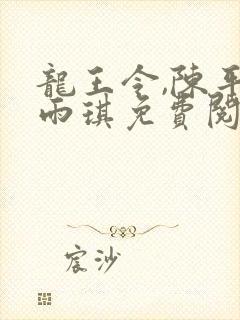 龍王令,陳平
雨琪免費閱
宸沙